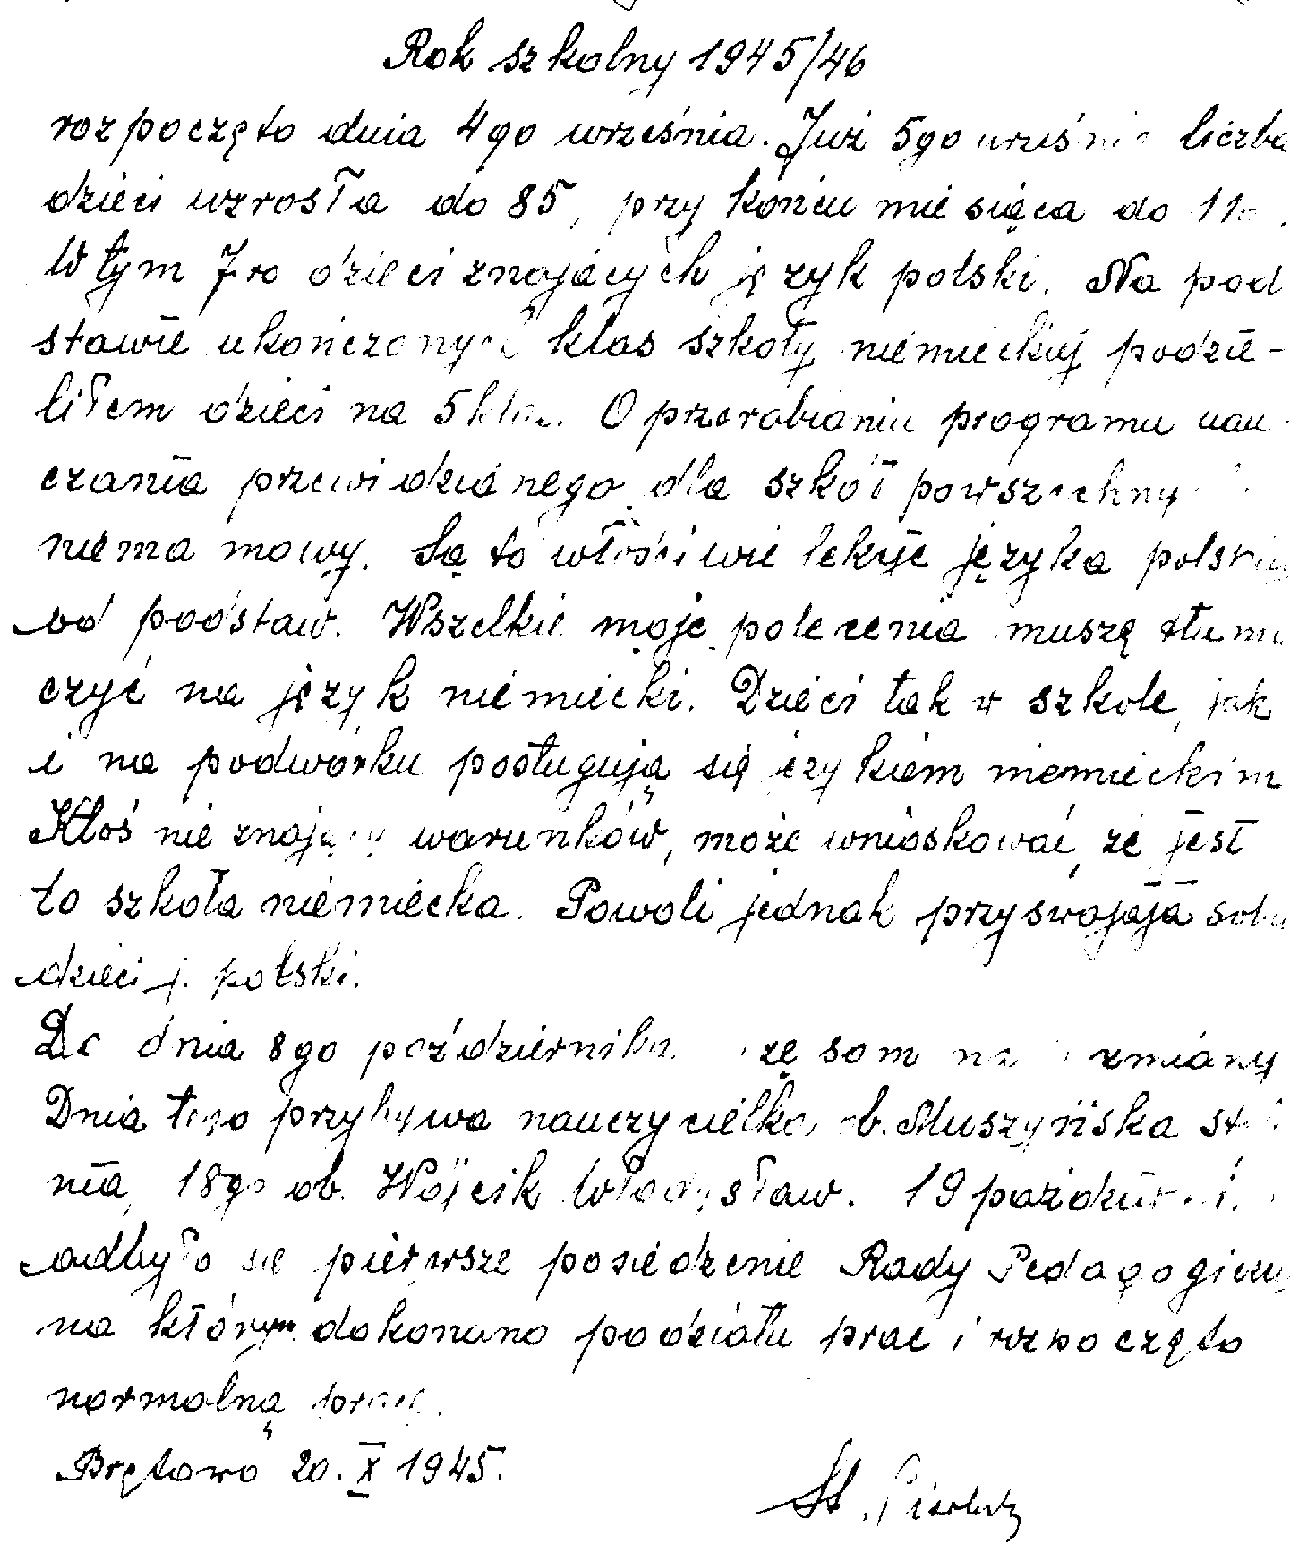 Rok szkolny 1945/46
rozpoczęto dnia 4go września. Już 5go września liczba
dzieci wzrosła do 85, przy końcu miesiąca do
W tym 7ro dzieci znających język polski. Na pod
stawie ukończonych klas szkoły niemieckiej podzie-
liłem dzieci na 5 klas. O przerabianiu programu nau
czania przewidzianego dla szkół powszechnych
niema mowy. Są to właściwie lekcje języka polskiego
od podstaw. Wszelkie moje polecenia muszę tłuma
czyć na język niemiecki. Dzieci tak w szkole, jak
i na podwórku posługują się językiem niemieckim
Ktoś nie znający warunków, może wnioskować, że jest
to szkoła niemiecka. Powoli jednak przyswajają sobie
dzieci j. polski.
Do dnia 8go października sam zmiany
Dnia tego przybywa nauczycielka ob. Muszyńska
nia, 18go ob. Wójcik Władysław. 19 października
odbyło się pierwsze posiedzenie Rady Pedagogicznej
na którym dokonano podziału prac i rozpoczęto
normalną pracę.
Brętowo 20. X 1945.
St.